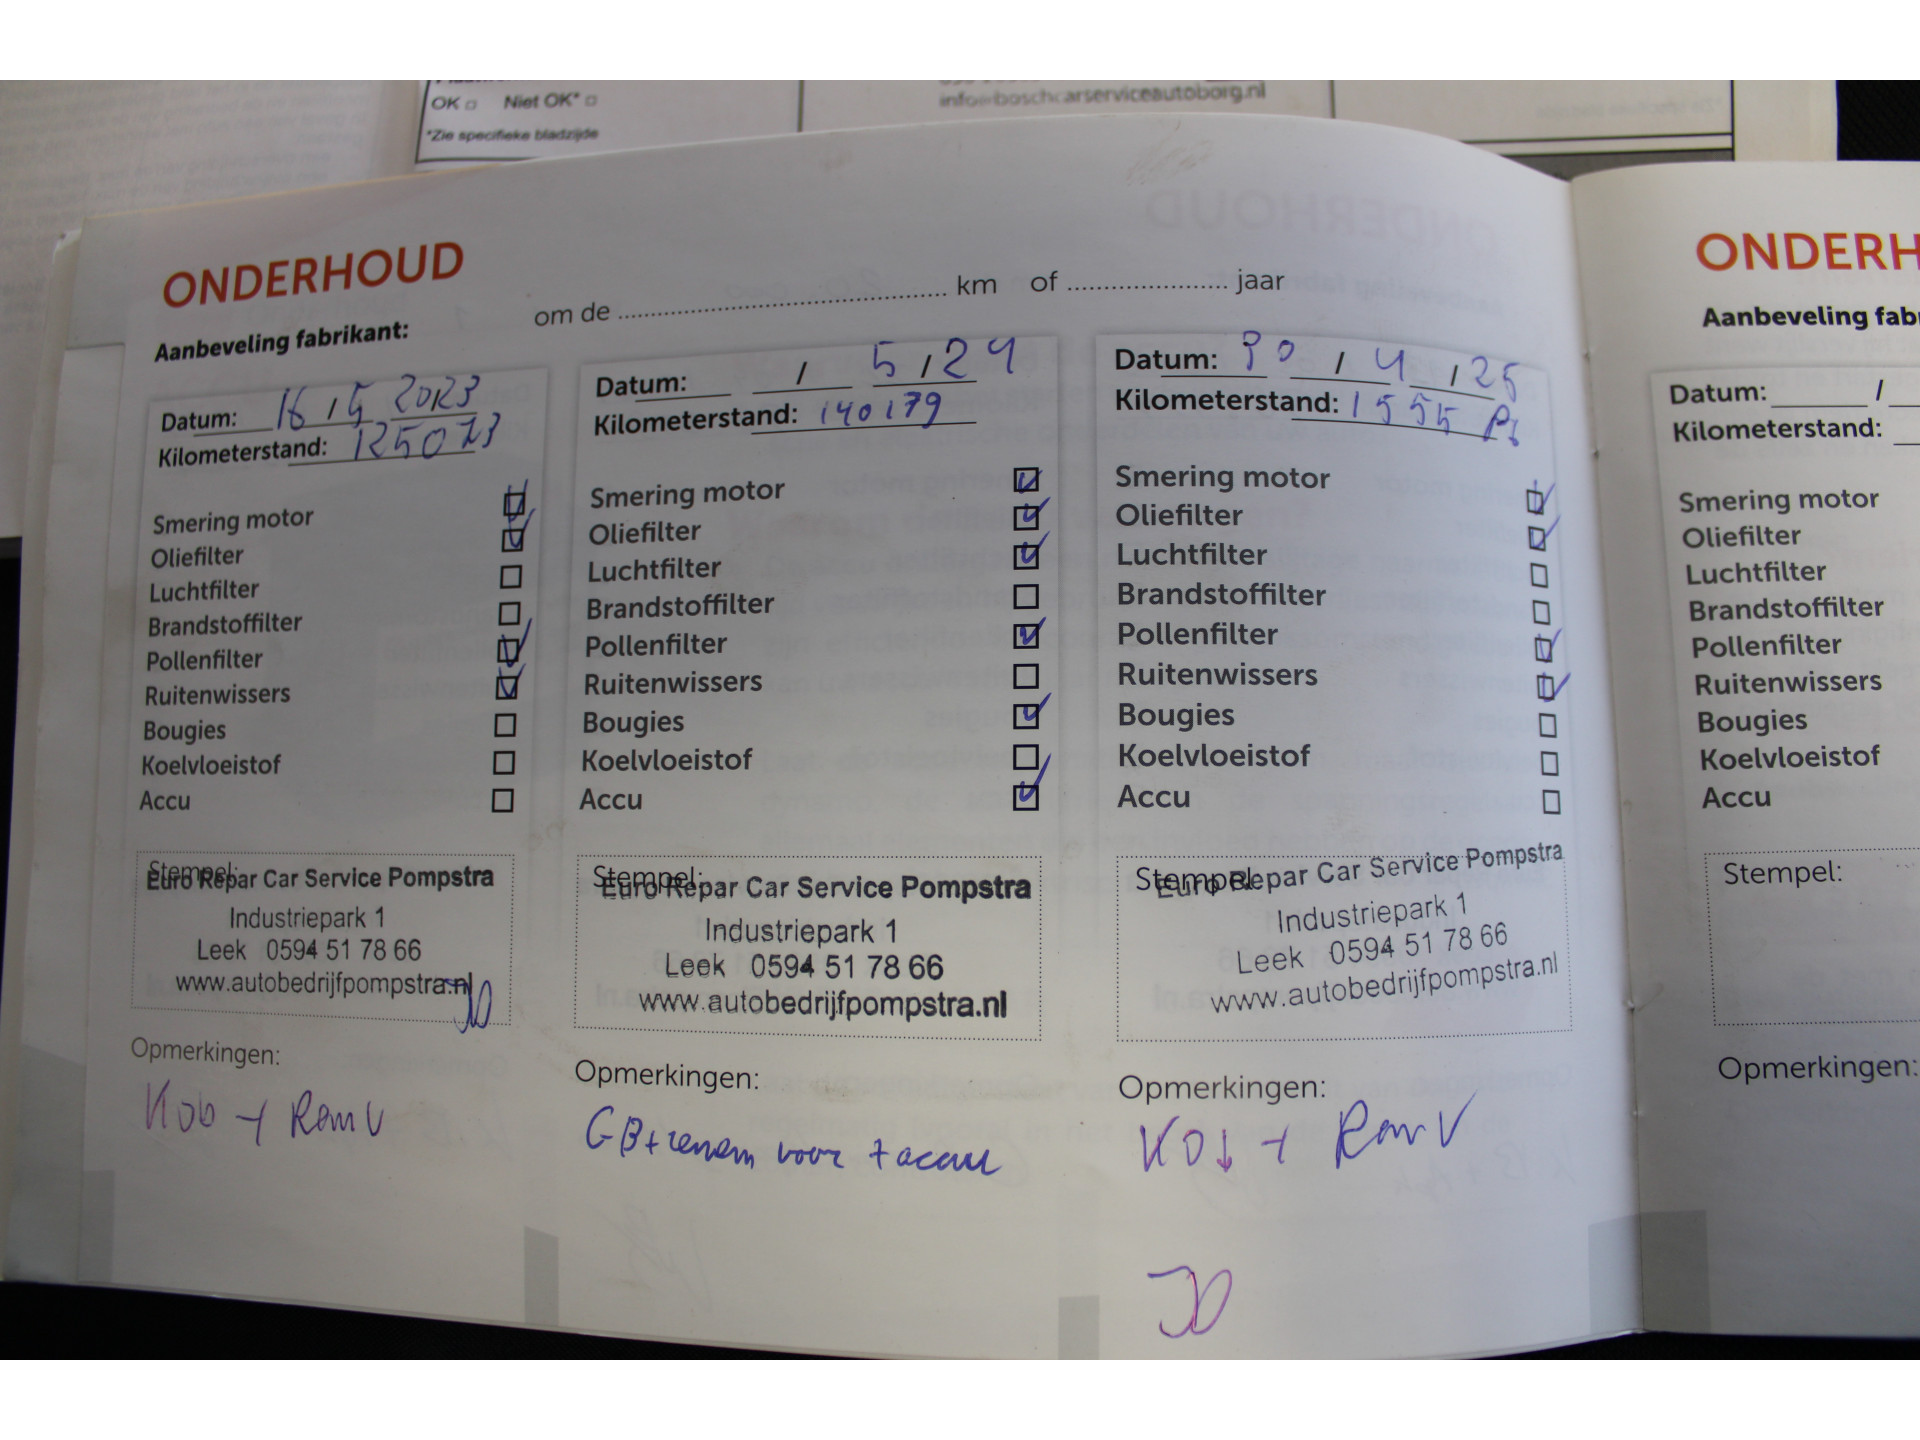 OK Niet OK*
*Zie specifieke bladzijde
info@boschcarserviceautoborg.nl
ONDERHOUD
Aanbeveling fabrikant:
om de .......... km of .......... jaar
Datum: 16 / 5 2023
Kilometerstand: 125073
Smering motor
Oliefilter
Luchtfilter
Brandstoffilter
Pollenfilter
Ruitenwissers
Bougies
Koelvloeistof
Accu
Stempel:
Euro Repar Car Service Pompstra
Industriepark 1
Leek 0594 51 78 66
www.autobedrijfpompstra.nl
Opmerkingen:
Datum: / 5 / 24
Kilometerstand: 140179
Smering motor
Oliefilter
Luchtfilter
Brandstoffilter
Pollenfilter
Ruitenwissers
Bougies
Koelvloeistof
Accu
Stempel:
Euro Repar Car Service Pompstra
Industriepark 1
Leek 0594 51 78 66
www.autobedrijfpompstra.nl
Opmerkingen:
GB + remmen voor + accu
Datum: 30 / 4 / 25
Kilometerstand:
Smering motor
Oliefilter
Luchtfilter
Brandstoffilter
Pollenfilter
Ruitenwissers
Bougies
Koelvloeistof
Accu
Stempel:
Euro Repar Car Service Pompstra
Industriepark 1
Leek 0594 51 78 66
www.autobedrijfpompstra.nl
Opmerkingen:
ONDERH
Aanbeveling fab
Datum: /
Kilometerstand:
Smering motor
Oliefilter
Luchtfilter
Brandstoffilter
Pollenfilter
Ruitenwissers
Bougies
Koelvloeistof
Accu
Stempel:
Opmerkingen: